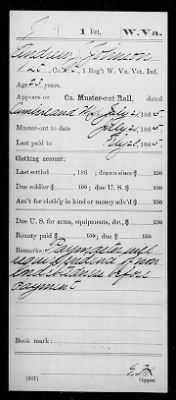 J 1 Vet. W.Va.
Andrew Johnson
Co. , 1 Reg't W. Va. Vet. Inf.
Age 23 years.
Appears on Co. Muster-out Roll, dated
Cumberland Md July 21, 1865.
Muster-out to date July 21, 1865.
Last paid to Feby 28, 1865.
Clothing account:
Last settled , 186 ; drawn since $ 100
Due soldier $ 100; due U. S. $ 100
Am't for cloth'g in kind or money adv'd $ 100
Due U. S. for arms, equipments, &c., $ 100
Bounty paid $ 100; due $ 100
Remarks: Paymaster will
require evidence of non
indebtedness before
payment
Book mark:
(861) Copyist.